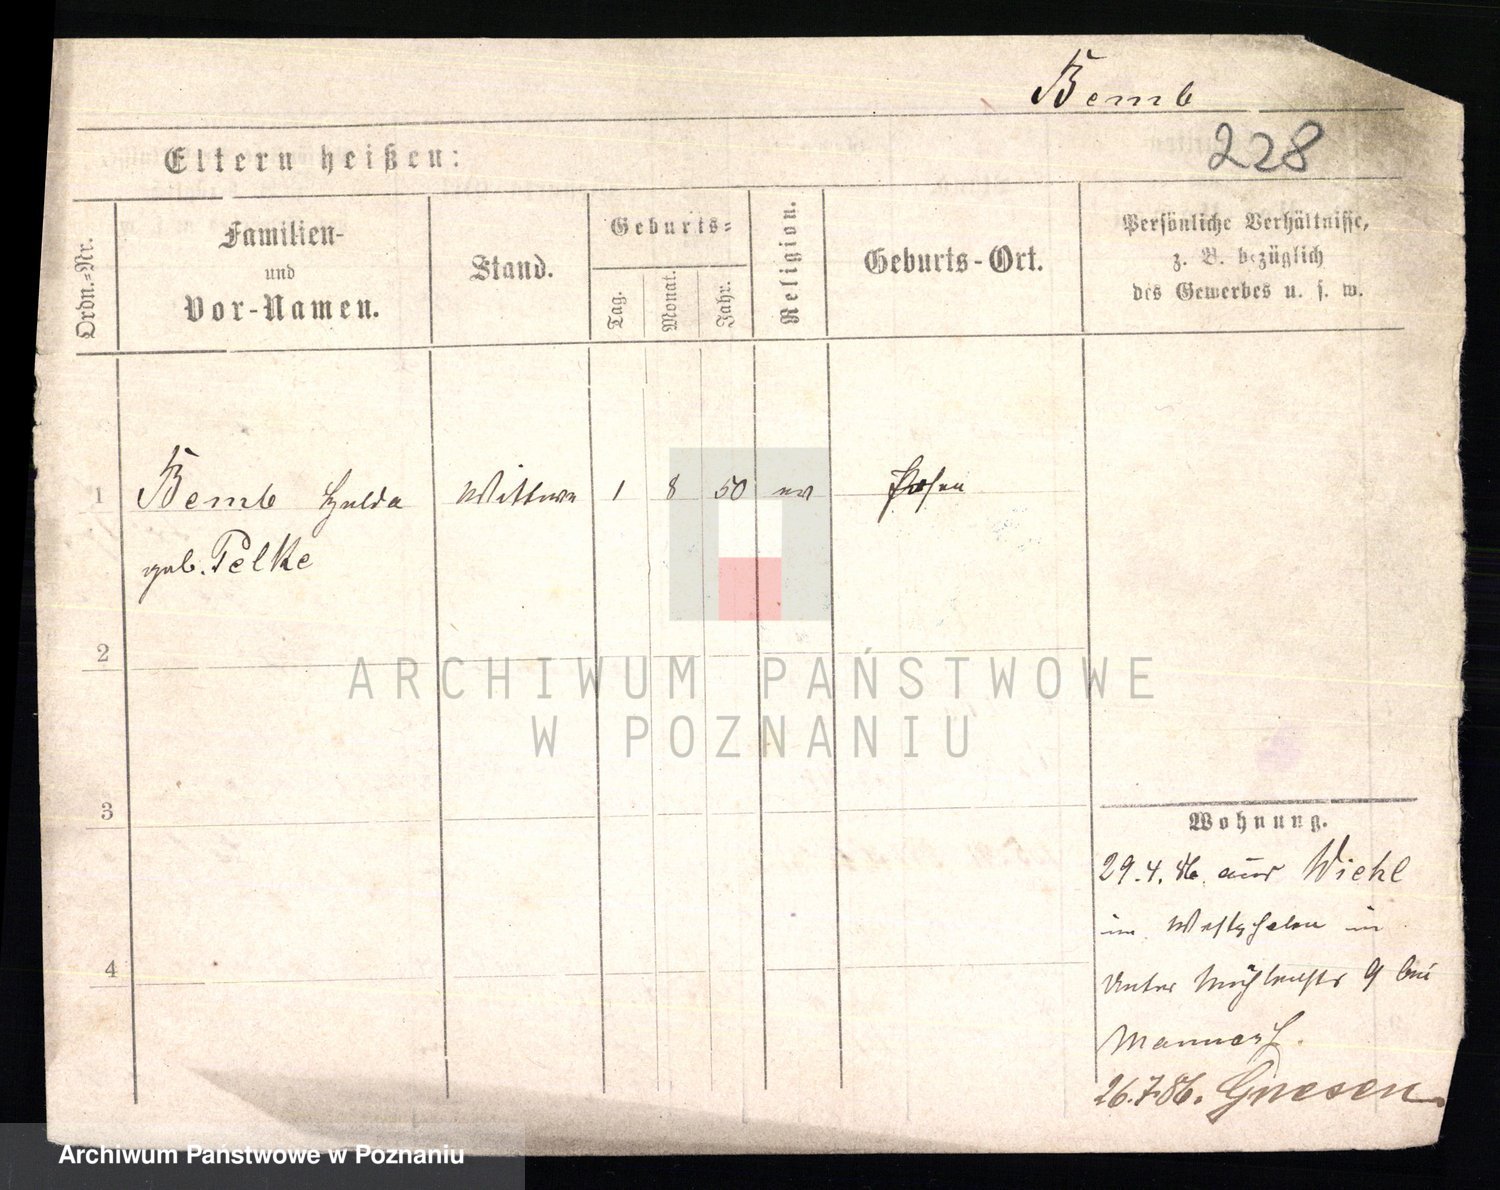 Bemb
228
Eltern heißen:
Ordn.-Nr.
Familien-
und
Vor-Namen.
Stand.
Geburts-
Tag.
Monat.
Jahr.
Religion.
Geburts-Ort.
Persönliche Verhältnisse,
z. B. bezüglich
des Gewerbes u. s. w.
1 Bemb Hulda Wittwe 1 8 50 ev Posen
geb. Pelke
2
3
4
ARCHIWUM PAŃSTWOWE
W POZNANIU
Wohnung.
29.4.86. aus Wiehl
in Westphalen in
Unter Mühlenstr 9 bei
26.7.86. Gnesen.
Archiwum Państwowe w Poznaniu